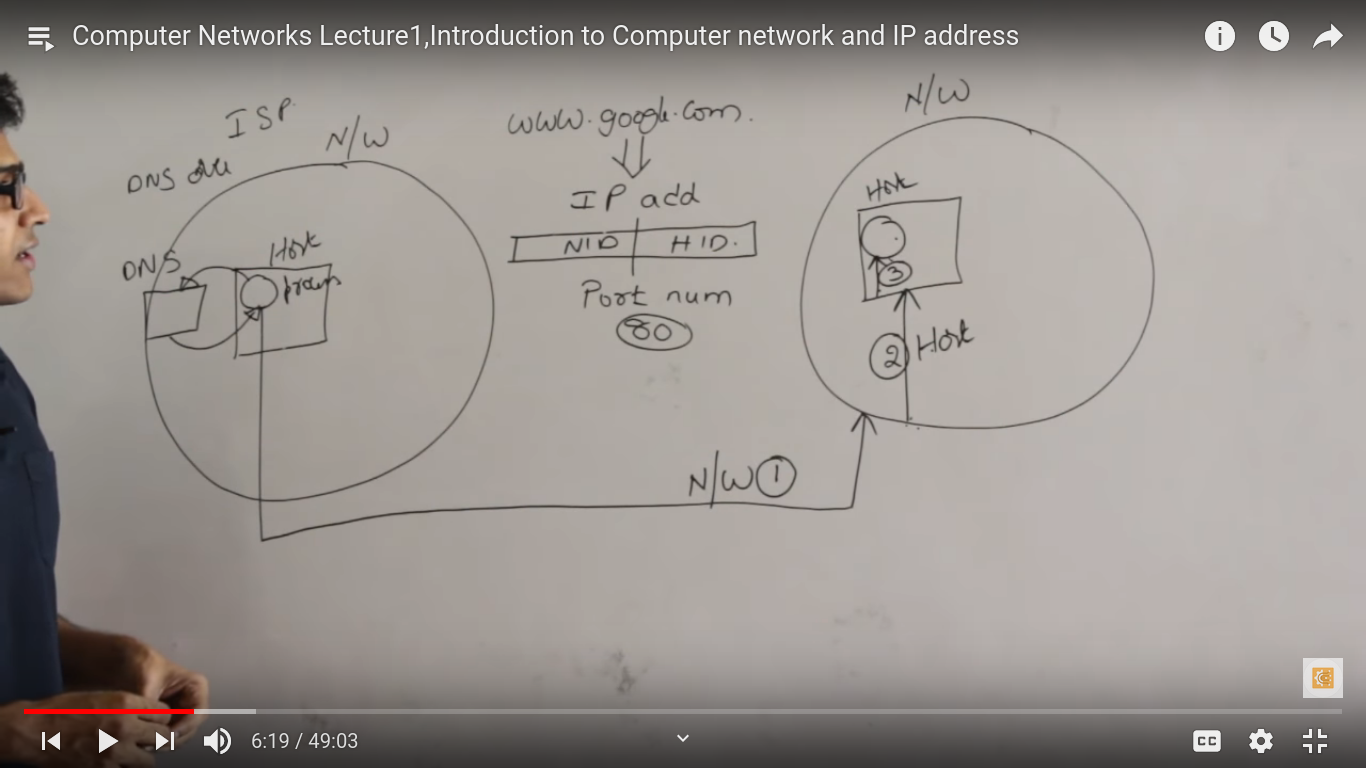 Computer Networks Lecture1,Introduction to Computer network and IP address
ISP
N/W
DNS
DNS
Host
www.google.com.
IP add
NID HID.
Port num
80
N/W
Host
3
2 Host
N/W 1
6:19 / 49:03
CC